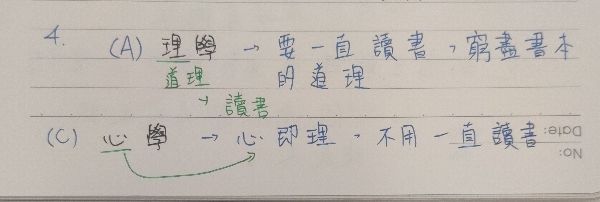 4.
(A) 理學 → 要一直讀書,窮盡書本
道理 的道理
→ 讀書
(C) 心學 → 心即理,不用一直讀書
Date:
No: